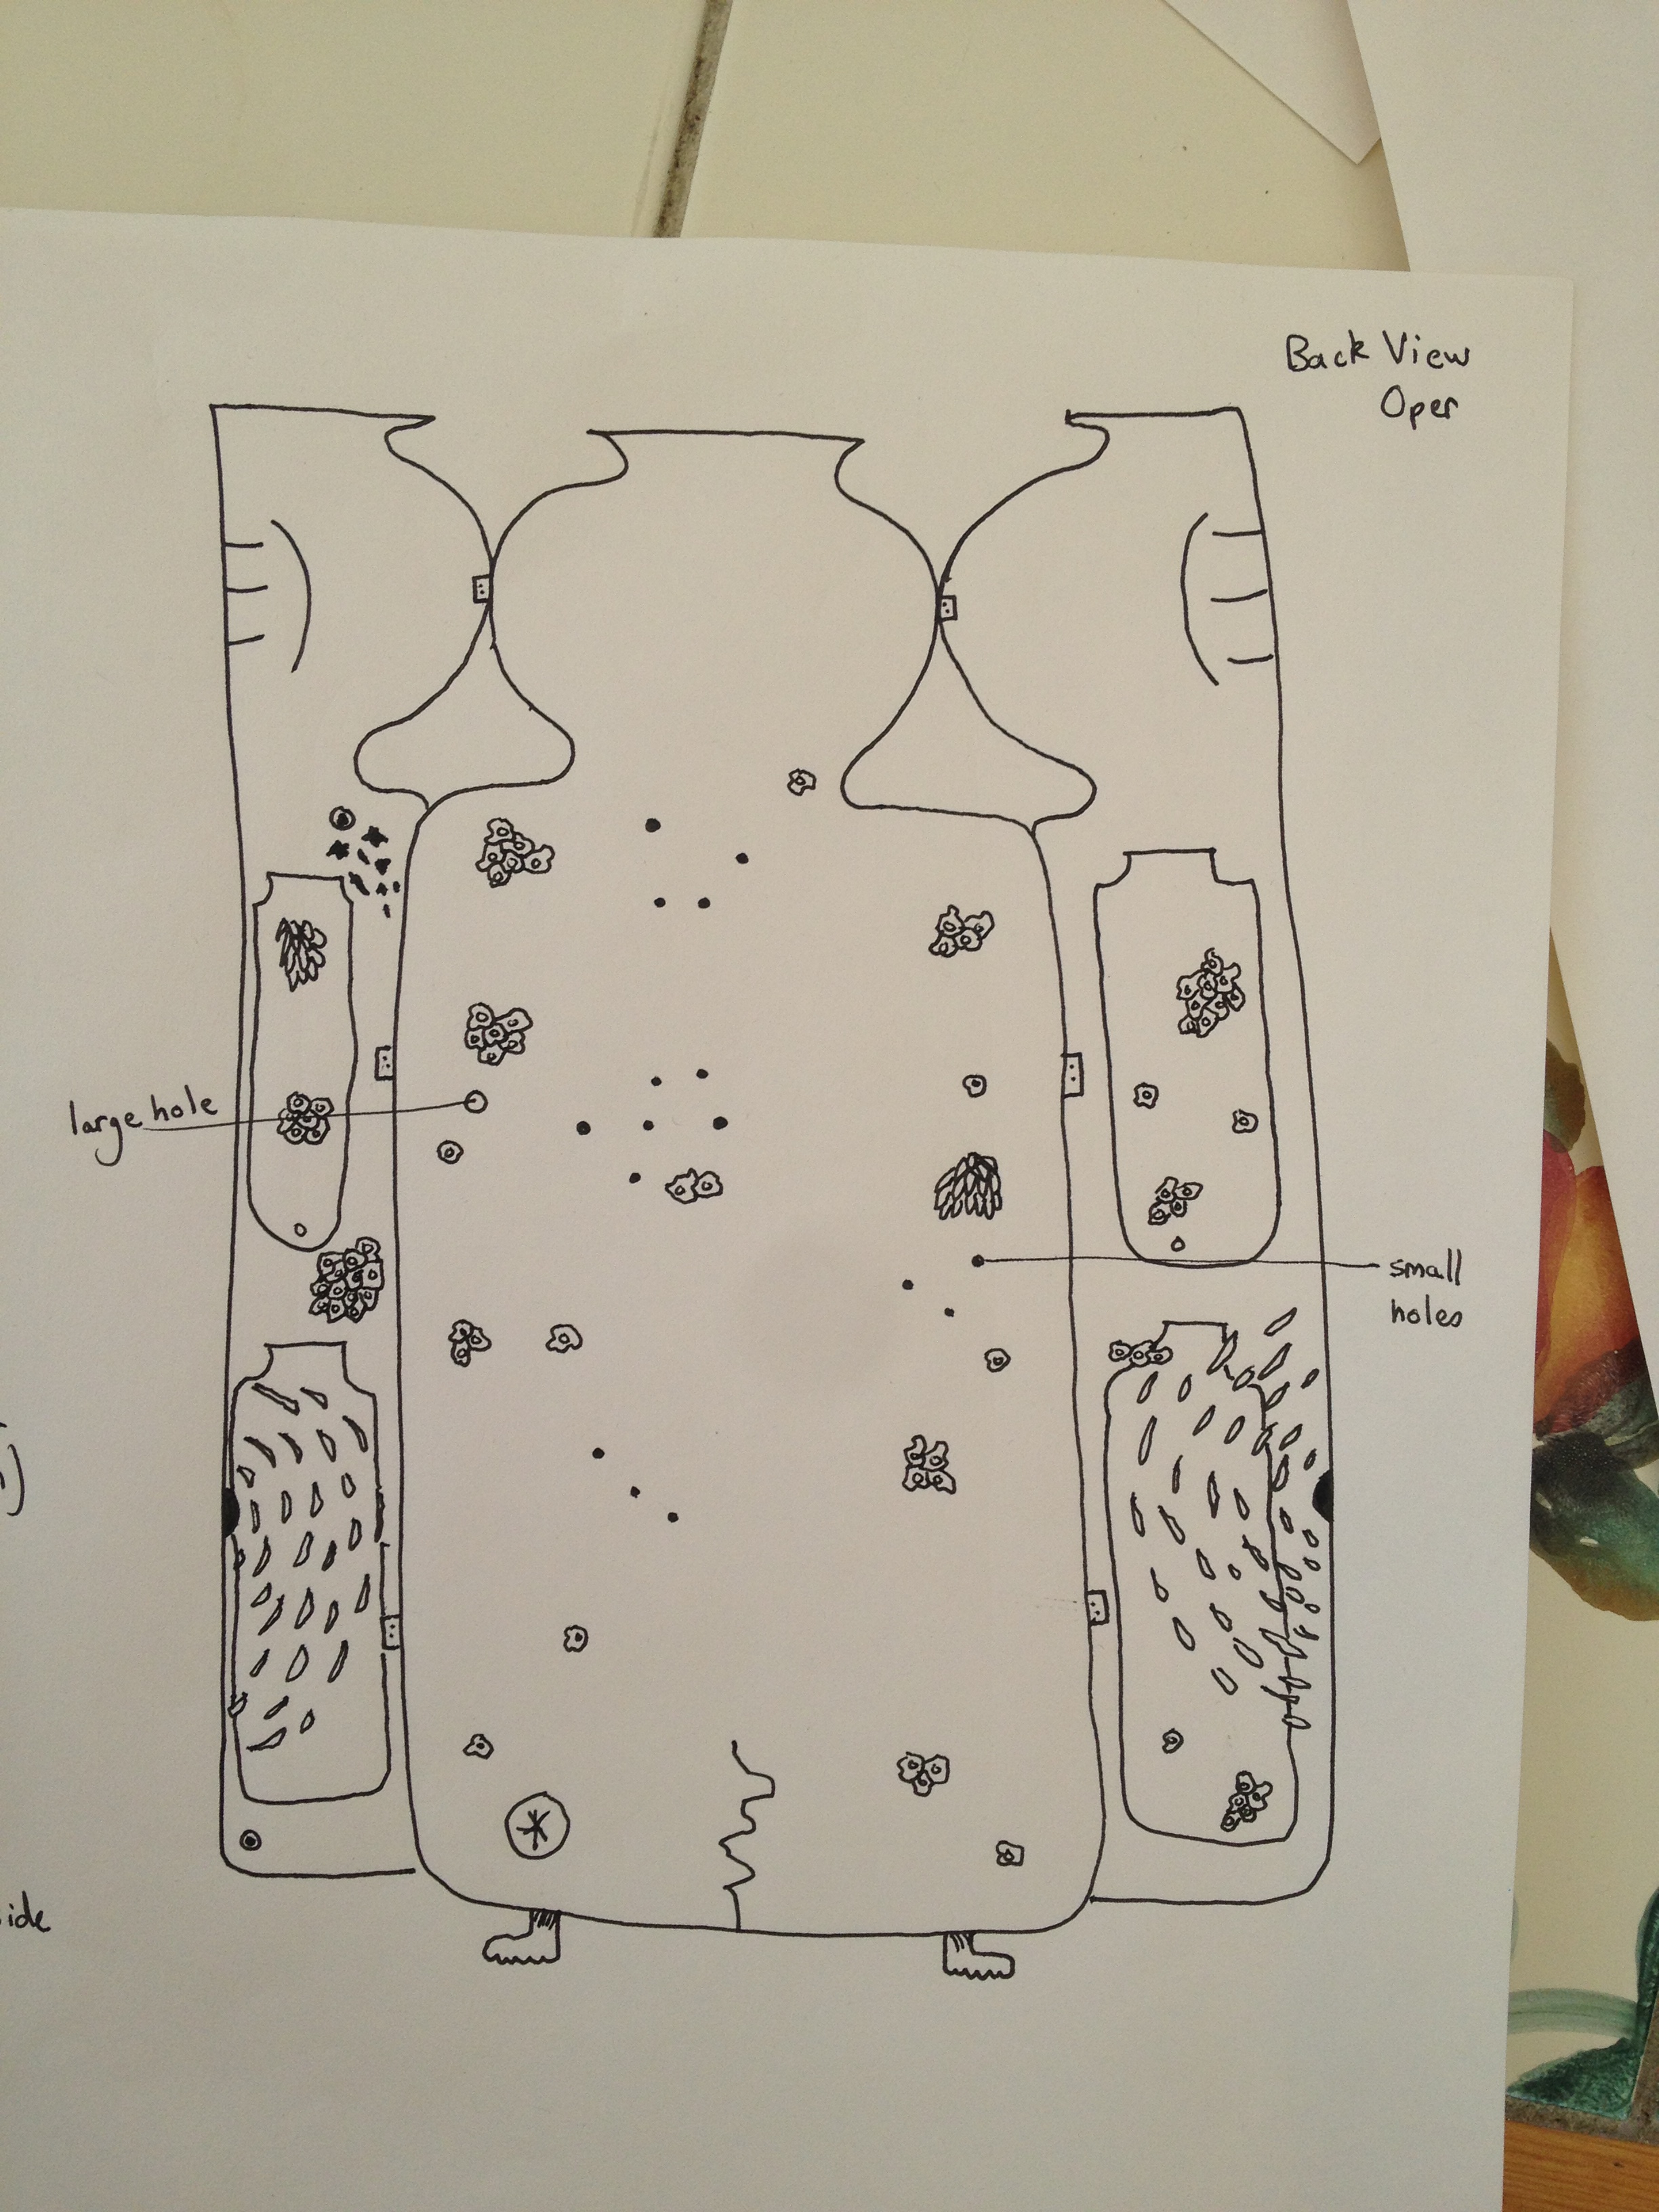 Back View
Open
large hole
small
holes
ide